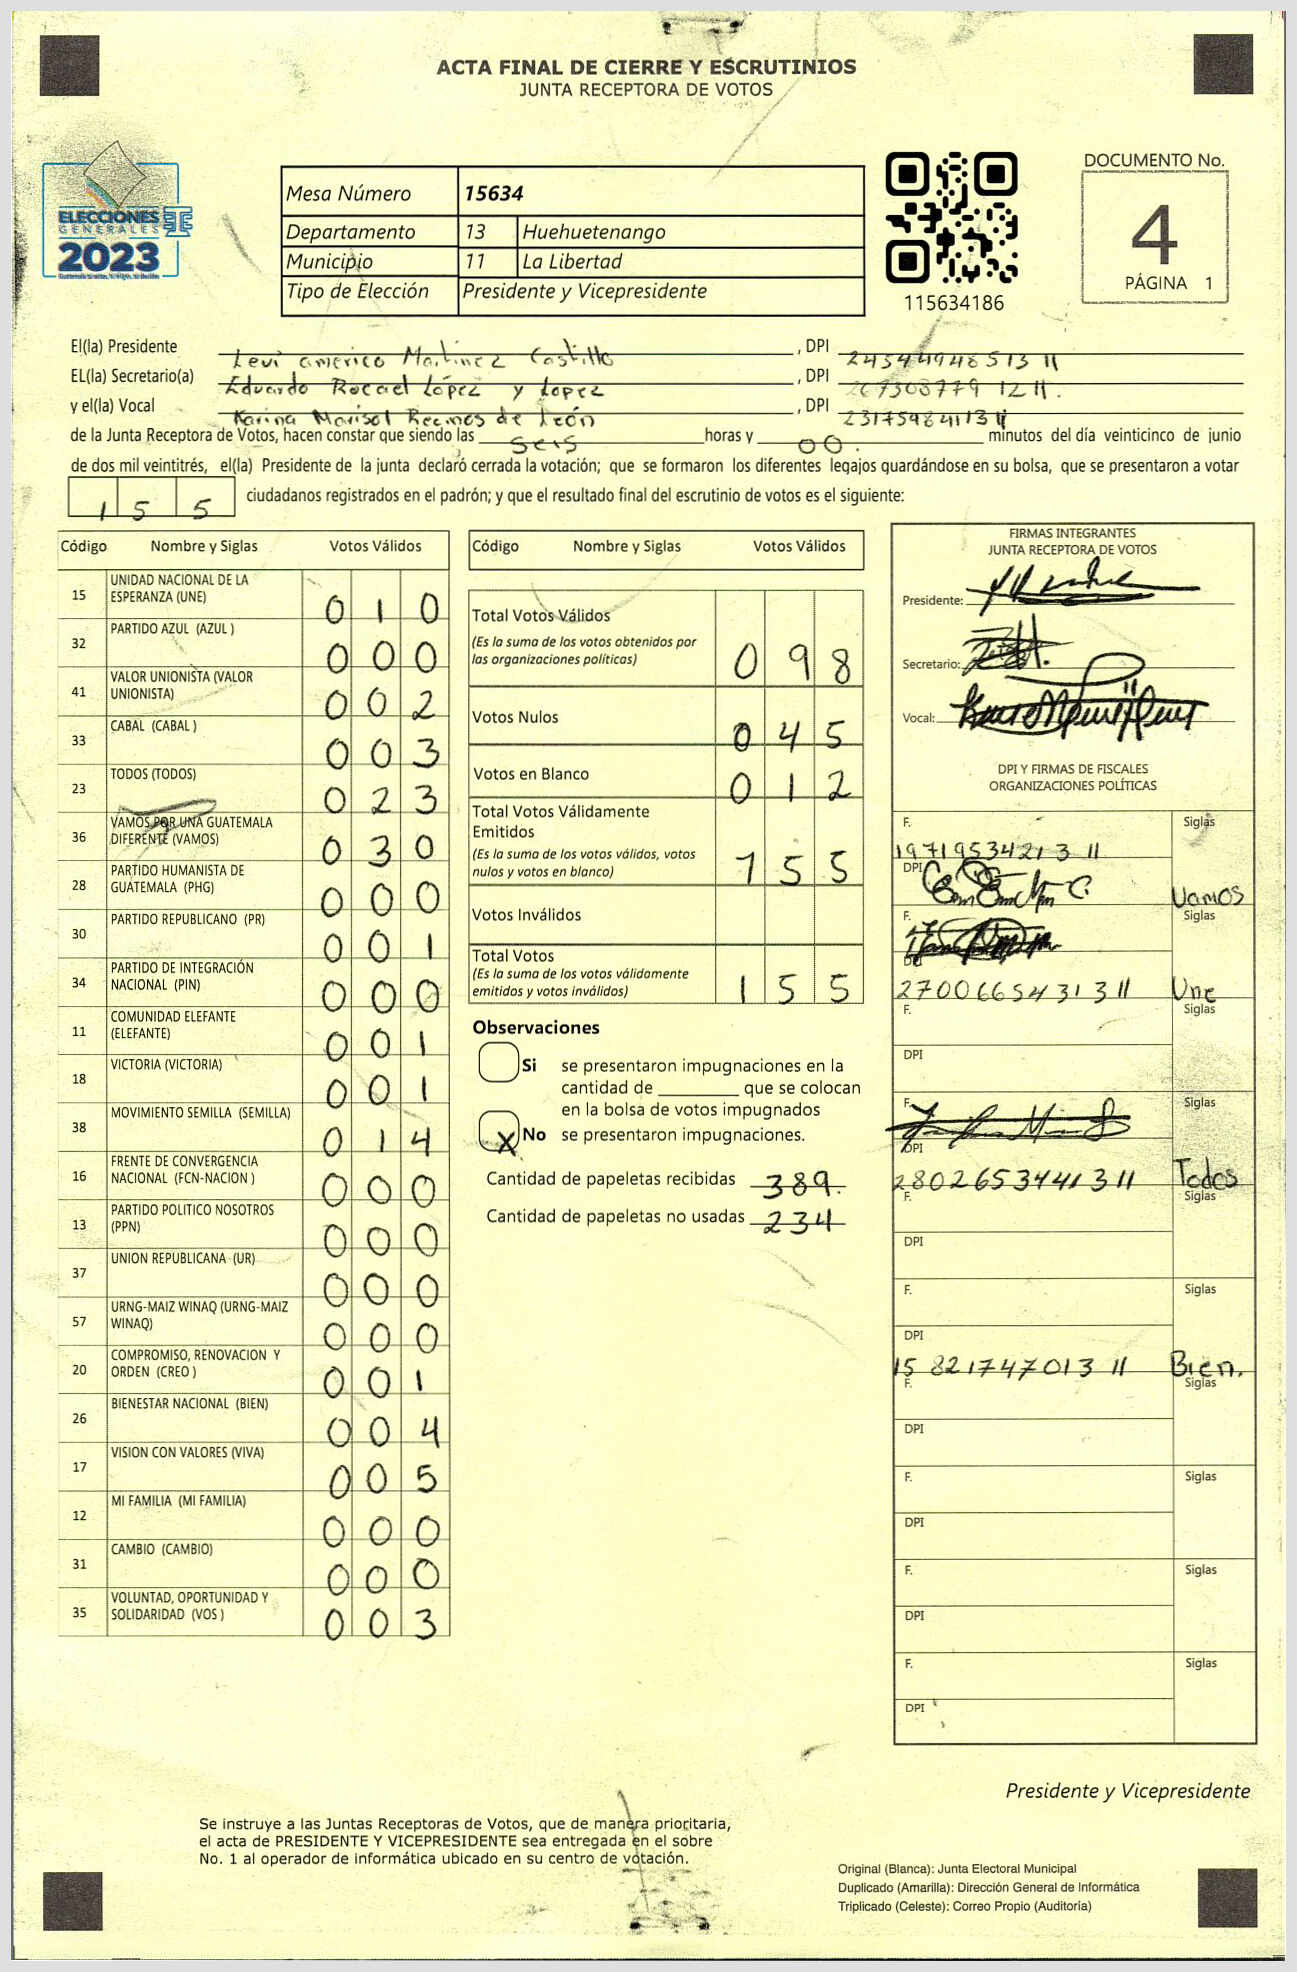 ACTA FINAL DE CIERRE Y ESCRUTINIOS
JUNTA RECEPTORA DE VOTOS
ELECCIONES
GENERALES
2023
Mesa Número 15634
Departamento 13 Huehuetenango
Municipio 11 La Libertad
Tipo de Elección Presidente y Vicepresidente
115634186
DOCUMENTO No.
4
PÁGINA 1
El(la) Presidente Levi americo Martinez Castillo, DPI 2454494851311
EL(la) Secretario(a) Eduardo Rocael López y Lopez, DPI 267308779 1211.
y el(la) Vocal Karina Marisol Recinos de León, DPI 2317598411311
de la Junta Receptora de Votos, hacen constar que siendo las seis horas y 00. minutos del día veinticinco de junio
de dos mil veintitrés, el(la) Presidente de la junta declaró cerrada la votación; que se formaron los diferentes legajos guardándose en su bolsa, que se presentaron a votar
155 ciudadanos registrados en el padrón; y que el resultado final del escrutinio de votos es el siguiente:
Código Nombre y Siglas Votos Válidos
15 UNIDAD NACIONAL DE LA ESPERANZA (UNE) 010
32 PARTIDO AZUL (AZUL ) 000
41 VALOR UNIONISTA (VALOR UNIONISTA) 002
33 CABAL (CABAL ) 003
23 TODOS (TODOS) 023
36 VAMOS POR UNA GUATEMALA DIFERENTE (VAMOS) 030
28 PARTIDO HUMANISTA DE GUATEMALA (PHG) 000
30 PARTIDO REPUBLICANO (PR) 001
34 PARTIDO DE INTEGRACIÓN NACIONAL (PIN) 000
11 COMUNIDAD ELEFANTE (ELEFANTE) 001
18 VICTORIA (VICTORIA) 001
38 MOVIMIENTO SEMILLA (SEMILLA) 014
16 FRENTE DE CONVERGENCIA NACIONAL (FCN-NACION ) 000
13 PARTIDO POLITICO NOSOTROS (PPN) 000
37 UNION REPUBLICANA (UR) 000
57 URNG-MAIZ WINAQ (URNG-MAIZ WINAQ) 000
20 COMPROMISO, RENOVACION Y ORDEN (CREO ) 001
26 BIENESTAR NACIONAL (BIEN) 004
17 VISION CON VALORES (VIVA) 005
12 MI FAMILIA (MI FAMILIA) 000
31 CAMBIO (CAMBIO) 000
35 VOLUNTAD, OPORTUNIDAD Y SOLIDARIDAD (VOS ) 003
Código Nombre y Siglas Votos Válidos
Total Votos Válidos 098
(Es la suma de los votos obtenidos por
las organizaciones políticas)
Votos Nulos 045
Votos en Blanco 012
Total Votos Válidamente
Emitidos 155
(Es la suma de los votos válidos, votos
nulos y votos en blanco)
Votos Inválidos
Total Votos 155
(Es la suma de los votos válidamente
emitidos y votos inválidos)
Observaciones
Si se presentaron impugnaciones en la
cantidad de ________ que se colocan
en la bolsa de votos impugnados
X No se presentaron impugnaciones.
Cantidad de papeletas recibidas 389.
Cantidad de papeletas no usadas 234
FIRMAS INTEGRANTES
JUNTA RECEPTORA DE VOTOS
Presidente:
Secretario:
Vocal:
DPI Y FIRMAS DE FISCALES
ORGANIZACIONES POLÍTICAS
F. Siglas
1971953421311
DPI Vamos
F. Siglas
DPI
2700665431311 Une
F. Siglas
DPI
F. Siglas
DPI
2802653441311 Todos
F. Siglas
DPI
F. Siglas
DPI
1582174701311 Bien.
F. Siglas
DPI
F. Siglas
DPI
F. Siglas
DPI
F. Siglas
DPI
Presidente y Vicepresidente
Se instruye a las Juntas Receptoras de Votos, que de manera prioritaria,
el acta de PRESIDENTE Y VICEPRESIDENTE sea entregada en el sobre
No. 1 al operador de informática ubicado en su centro de votación.
Original (Blanca): Junta Electoral Municipal
Duplicado (Amarilla): Dirección General de Informática
Triplicado (Celeste): Correo Propio (Auditoría)